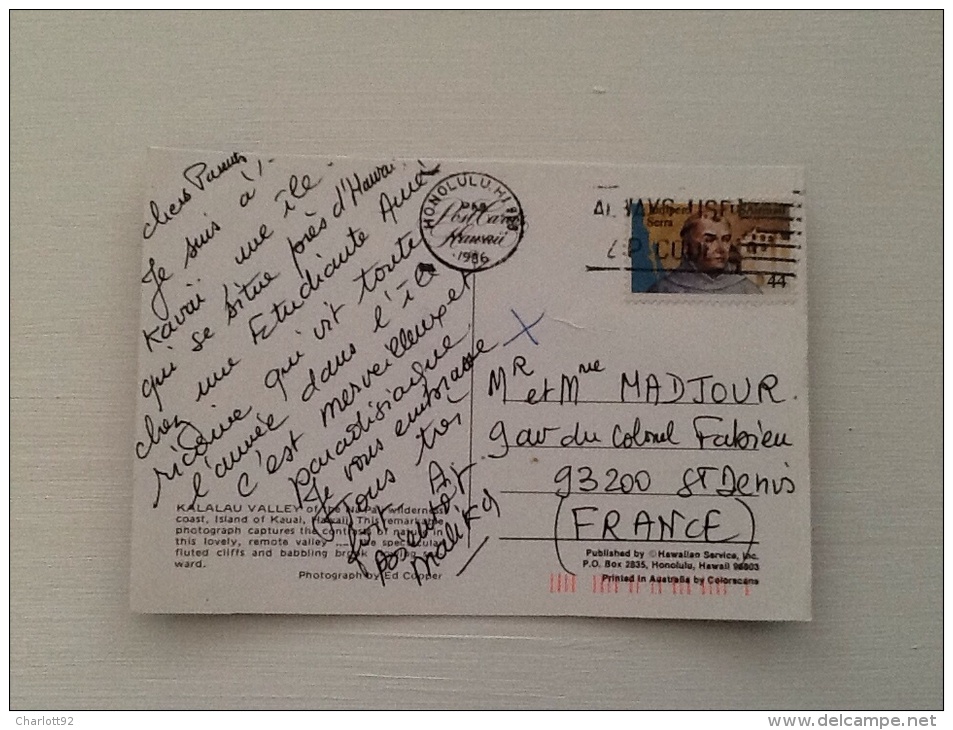 chers Parents,
Je suis à
Kavaï une île
qui se situe près d'Hawaï
chez une Etudiante Amé
ricaine qui vit toute
l'année dans l'île
C'est merveilleux et
paradisiaque
Je vous embrasse
Tous très
fort A
Bientôt
Malika
KALALAU VALLEY of the Na Pali wilderness
coast, Island of Kauai, Hawaii. This remarkable
photograph captures the contrast of nature in
this lovely, remote valley .... the spectacular
fluted cliffs and babbling brook
ward.
Photograph by Ed Cooper
HONOLULU, HI
PM
1986
ALWAYS USE
ZIP CODE
Junipero
Serra
44
Mr et Mme MADJOUR
9 av du Colonel Fabien
93200 St Denis
(FRANCE)
Published by © Hawaiian Service, Inc.
P.O. Box 2835, Honolulu, Hawaii 96803
Printed in Australia by Colorscans
Charlott92
www.delcampe.net